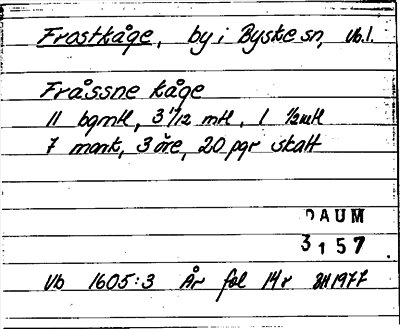 Frostkåge, by i Byske sn, Vb.l.
Fråssne kåge
11 bgmtl, 3 1/12 mtl, 1 1/2 mtl
7 mark, 3 öre, 20 pgr skatt
DAUM
3157
Vb 1605:3 År fol 14r 1977